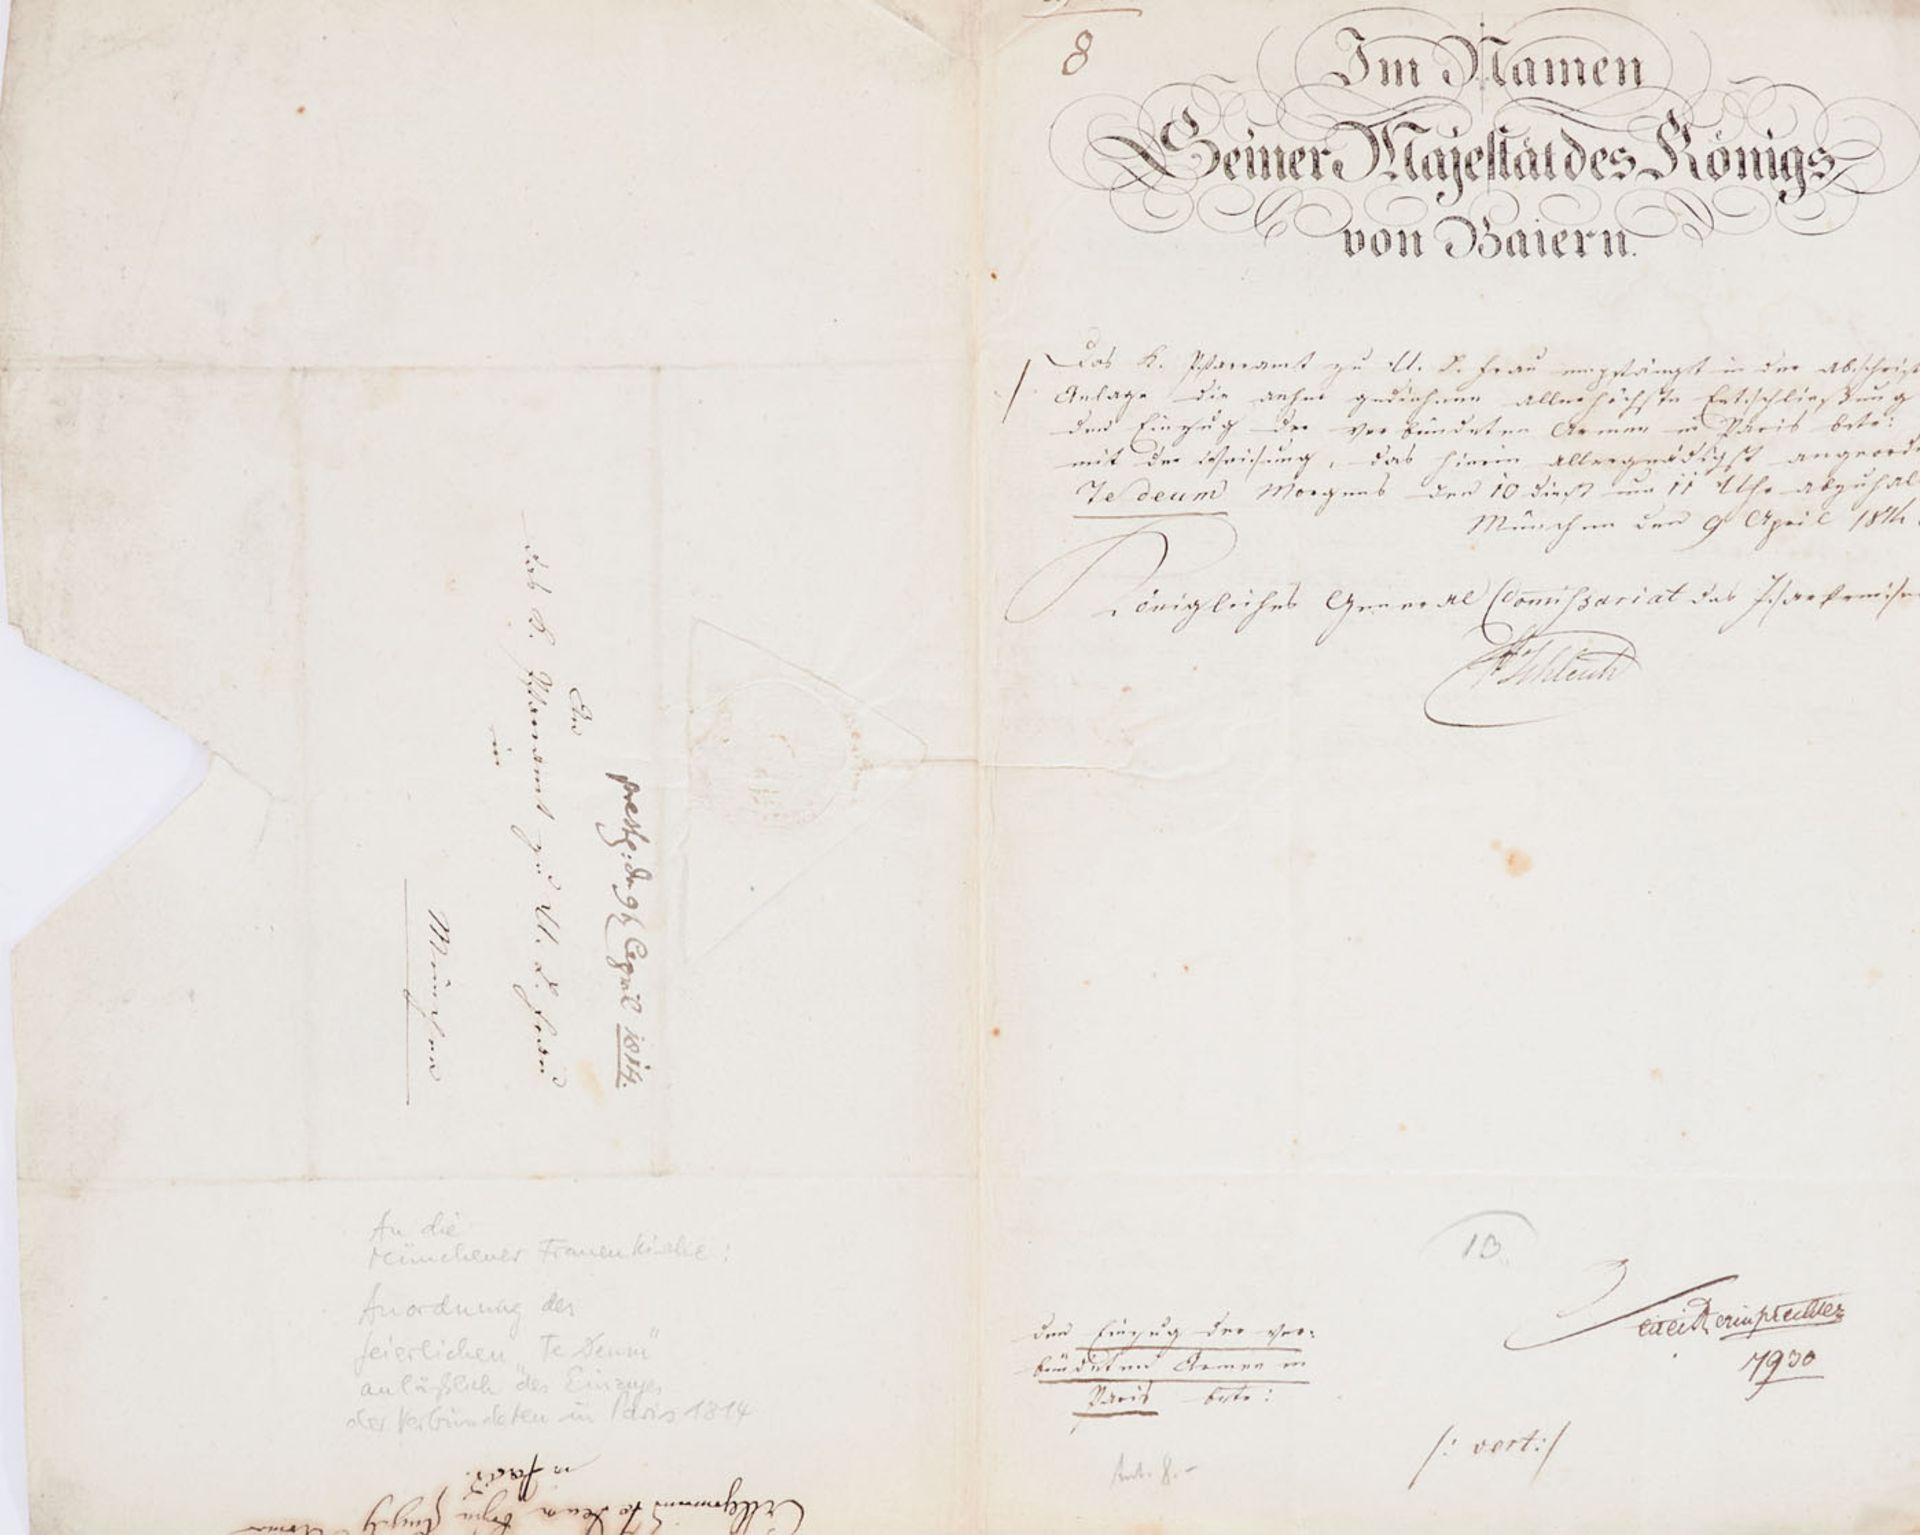 8
Im Namen
Seiner Majestät des Königs
von Baiern.
Das K. Pfarramt zu U. L. Frau empfängt in der abschrift
Anlage die anher gediehene allerhöchste Entschließung
den Einzug der verbündeten Armee in Paris betr:
mit der Weisung, das hierin allergnädigst angeord
Te deum Morgens den 10 dieß um 11 Uhr abzuhal
München den 9 April 1814
Königliches General Commissariat des Isarkreises
Schleich
An
das K. Pfarramt zu U. L. Frau
in
München
April 1814.
An die
Münchener Frauenkirche:
Anordnung des
feierlichen "Te Deum"
anläßlich des Einzuges
der Verbündeten in Paris 1814
13
den Einzug der ver:
bündeten Armee in
Paris betr:
7930
/: vert:/
in Paris.